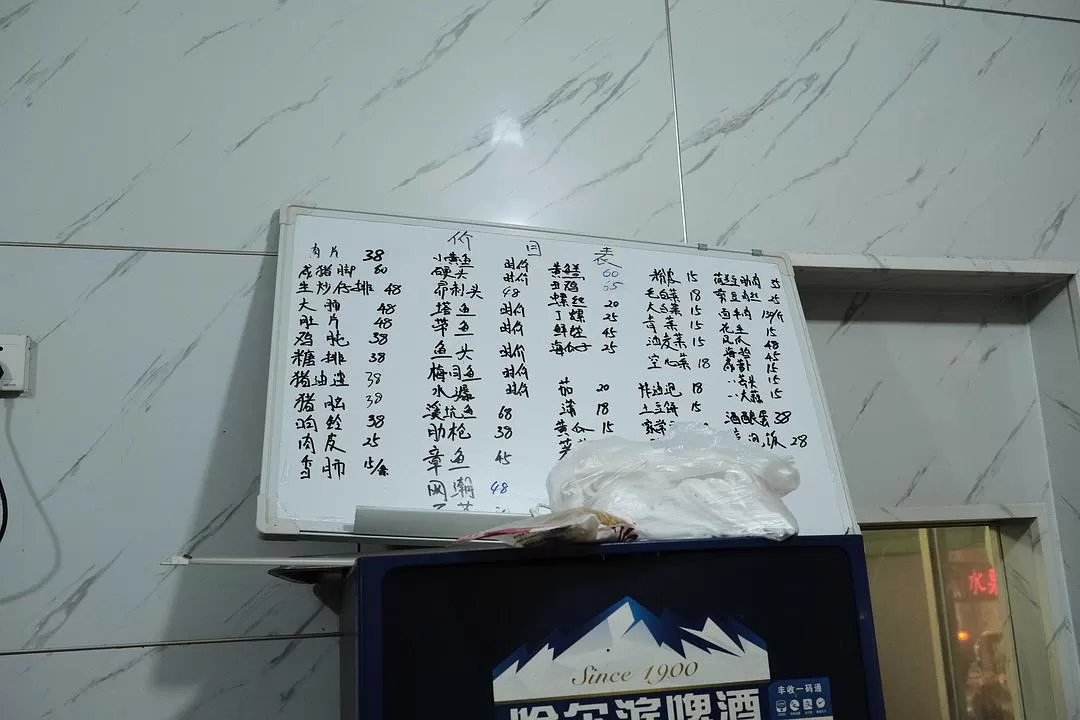 价目表
肉片 38
咸猪脚 60
生炒仔排 48
大肠 48
肚片 48
鸡肫 38
糖排 38
猪油渣 38
猪脑 38
响铃 38
肉皮 25
香肺 15/条
小黄鱼 时价
硬头 时价
昂刺头 48
塔鱼 时价
带鱼 时价
鱼头 时价
梅同鱼 时价
水潺 时价
溪坑鱼 68
肋枪 38
章鱼 45
网潮 48
黄鳝 60
丑鸡 65
螺丝 20
丁螺 25
鲜蛏 45
海瓜子 25
茄 20
蒲 18
黄瓜 15
粉皮 15
毛白菜 18
大白菜 15
青菜 15
油皮菜 15
空心菜 18
炸油泡 18
土豆饼 15
55
25
卤牛肉
花生 15
凤爪 48
海蜇 45
15
15
大蒜 15
酒酿蛋 38
28
Since 1900
哈尔滨啤酒
丰收一码通
水果